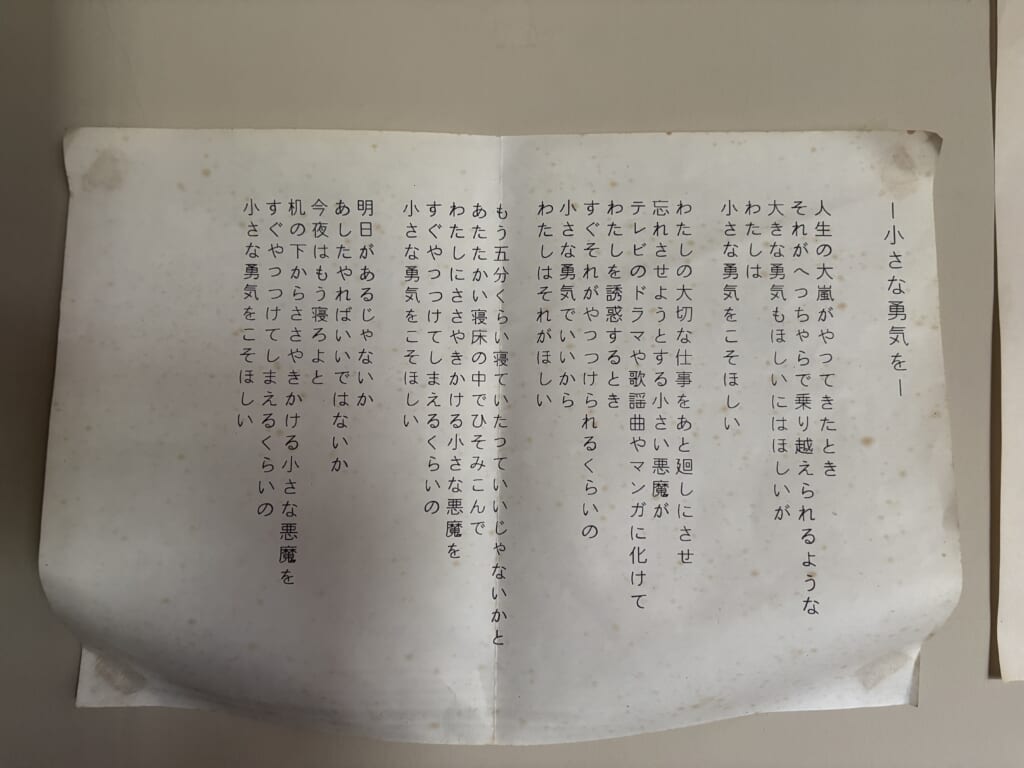 ー小さな勇気をー
人生の大嵐がやってきたとき
それがへっちゃらで乗り越えられるような
大きな勇気もほしいにはほしいが
わたしは
小さな勇気をこそほしい
わたしの大切な仕事をあと廻しにさせ
忘れさせようとする小さい悪魔が
テレビのドラマや歌謡曲やマンガに化けて
わたしを誘惑するとき
すぐそれがやっつけられるくらいの
小さな勇気でいいから
わたしはそれがほしい
もう五分くらい寝ていたっていいじゃないかと
あたたかい寝床の中でひそみこんで
わたしにささやきかける小さな悪魔を
すぐやっつけてしまえるくらいの
小さな勇気をこそほしい
明日があるじゃないか
あしたやればいいではないか
今夜はもう寝ろよと
机の下からささやきかける小さな悪魔を
すぐやっつけてしまえるくらいの
小さな勇気をこそほしい